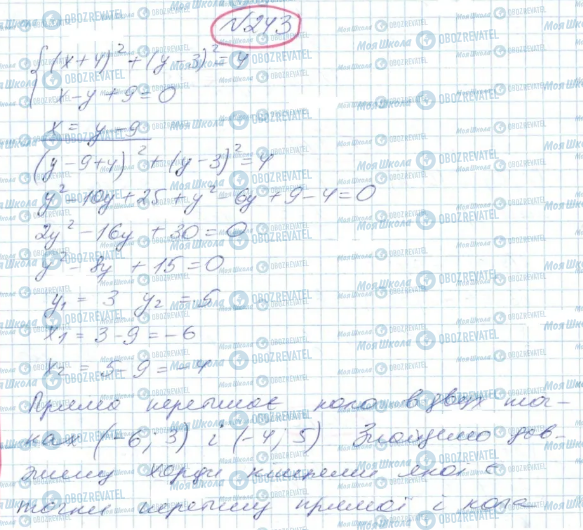 №243
{(x+4)² + (y-3)² = 4
x-y+9=0
x = y-9
(y-9+4)² + (y-3)² = 4
y² - 10y + 25 + y² - 6y + 9 - 4 = 0
2y² - 16y + 30 = 0
y² - 8y + 15 = 0
y₁ = 3 y₂ = 5
x₁ = 3-9 = -6
x₂ = 5-9 = -4
Пряма перетинає коло в двох точ-
ках (-6; 3) і (-4; 5) Знайдемо дов-
жину хорди кінцями якої є
точки перетину прямої і кола
Моя Школа OBOZREVATEL